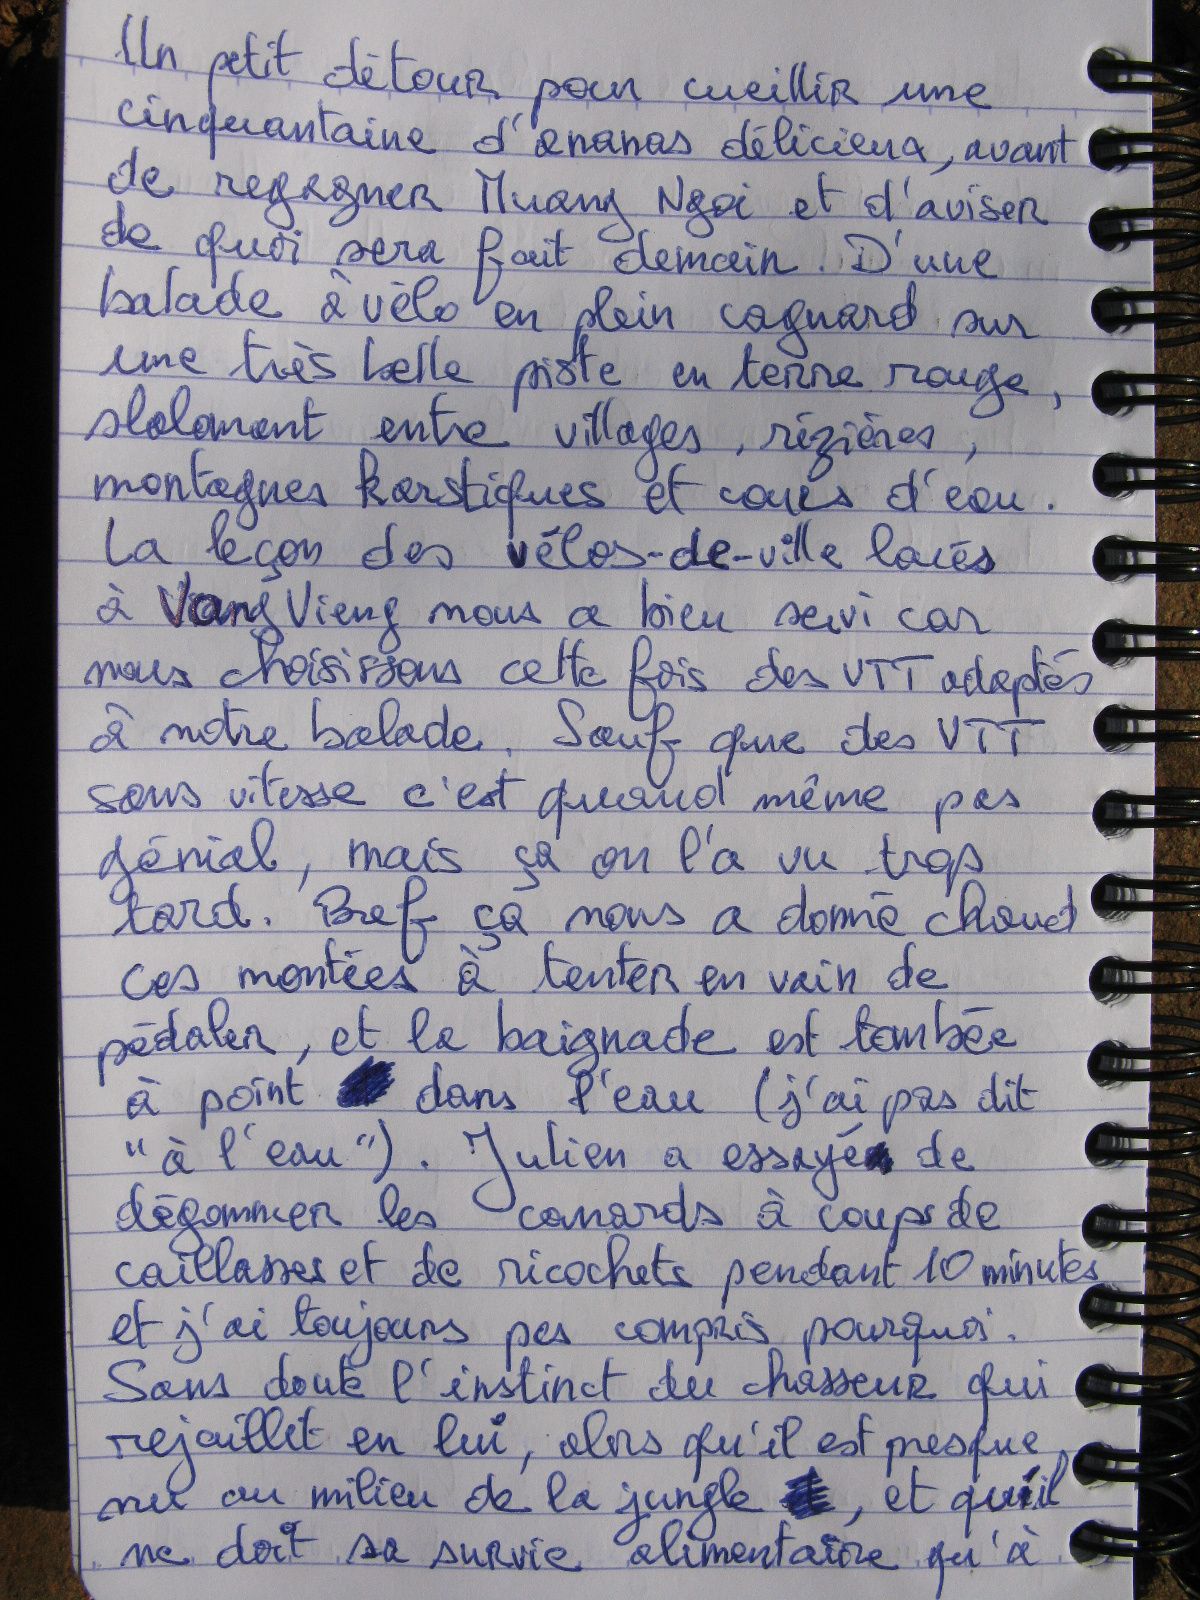 Un petit détour pour cueillir une
cinquantaine d'ananas délicieux, avant
de regagner Muang Ngoi et d'aviser
de quoi sera fait demain. D'une
balade à vélo en plein cagnard sur
une très belle piste en terre rouge,
slalomant entre villages, rizières,
montagnes karstiques et cours d'eau.
La leçon des vélos-de-ville loués
à Vang Vieng nous a bien servi car
nous choisissons cette fois des VTT adaptés
à notre balade. Sauf que des VTT
sans vitesse c'est quand même pas
génial, mais ça on l'a vu trop
tard. Bref ça nous a donné chaud
ces montées à tenter en vain de
pédaler, et la baignade est tombée
à point dans l'eau (j'ai pas dit
"à l'eau"). Julien a essayé de
dégommer les canards à coups de
caillasses et de ricochets pendant 10 minutes
et j'ai toujours pas compris pourquoi.
Sans doute l'instinct du chasseur qui
rejaillit en lui, alors qu'il est presque
nu au milieu de la jungle, et qu'il
ne doit sa survie alimentaire qu'à